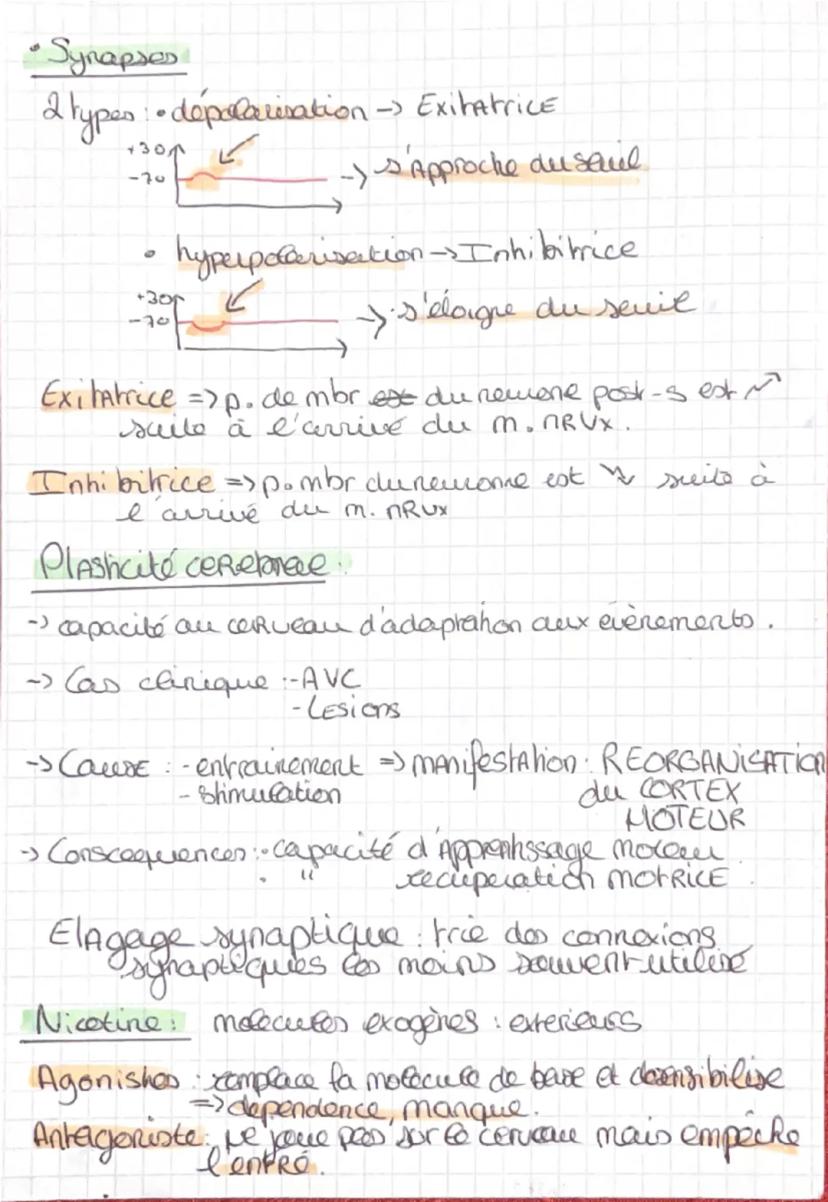 • Synapses
2 types : • dépolarisation -> Exitatrice
+30
-70 -> s'Approche du seuil
• hyperpolarisation -> Inhibitrice
+30
-70 -> s'éloigne du seuil
Exitatrice => p. de mbr est du neurone post-s est ↗
suite à l'arrivé du m. nRVx.
Inhibitrice => p. mbr du neuronne est ↘ suite à
l'arrivé du m. nRVx
Plasticité cerebrale.
-> capacité au cerveau d'adaptation aux évènements.
-> Cas clinique : - AVC
- Lesions
-> Cause : - entrainement => manifestation : REORGANISATION
- stimulation du CORTEX
MOTEUR
-> Conscequences : • capacité d'Apprentissage moteur
• " recuperation MOTRICE.
Elagage synaptique : trie des connexions
synaptiques les moins souvent utilisé
Nicotine : molecules exogènes : exterieurs
Agonistes : remplace la molécule de base et desensibilise
=> dependence, manque.
Antagoniste : Ne joue pas sur le cerveau mais empêche
l'entré.